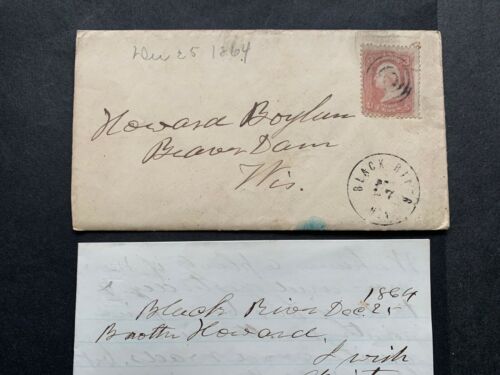 Dec 25 1864
Howard Boylan
Beaver Dam
Wis.
BLACK RIVER
7
N.Y.
1864
Black River Dec 25
Brother Howard.
I wish